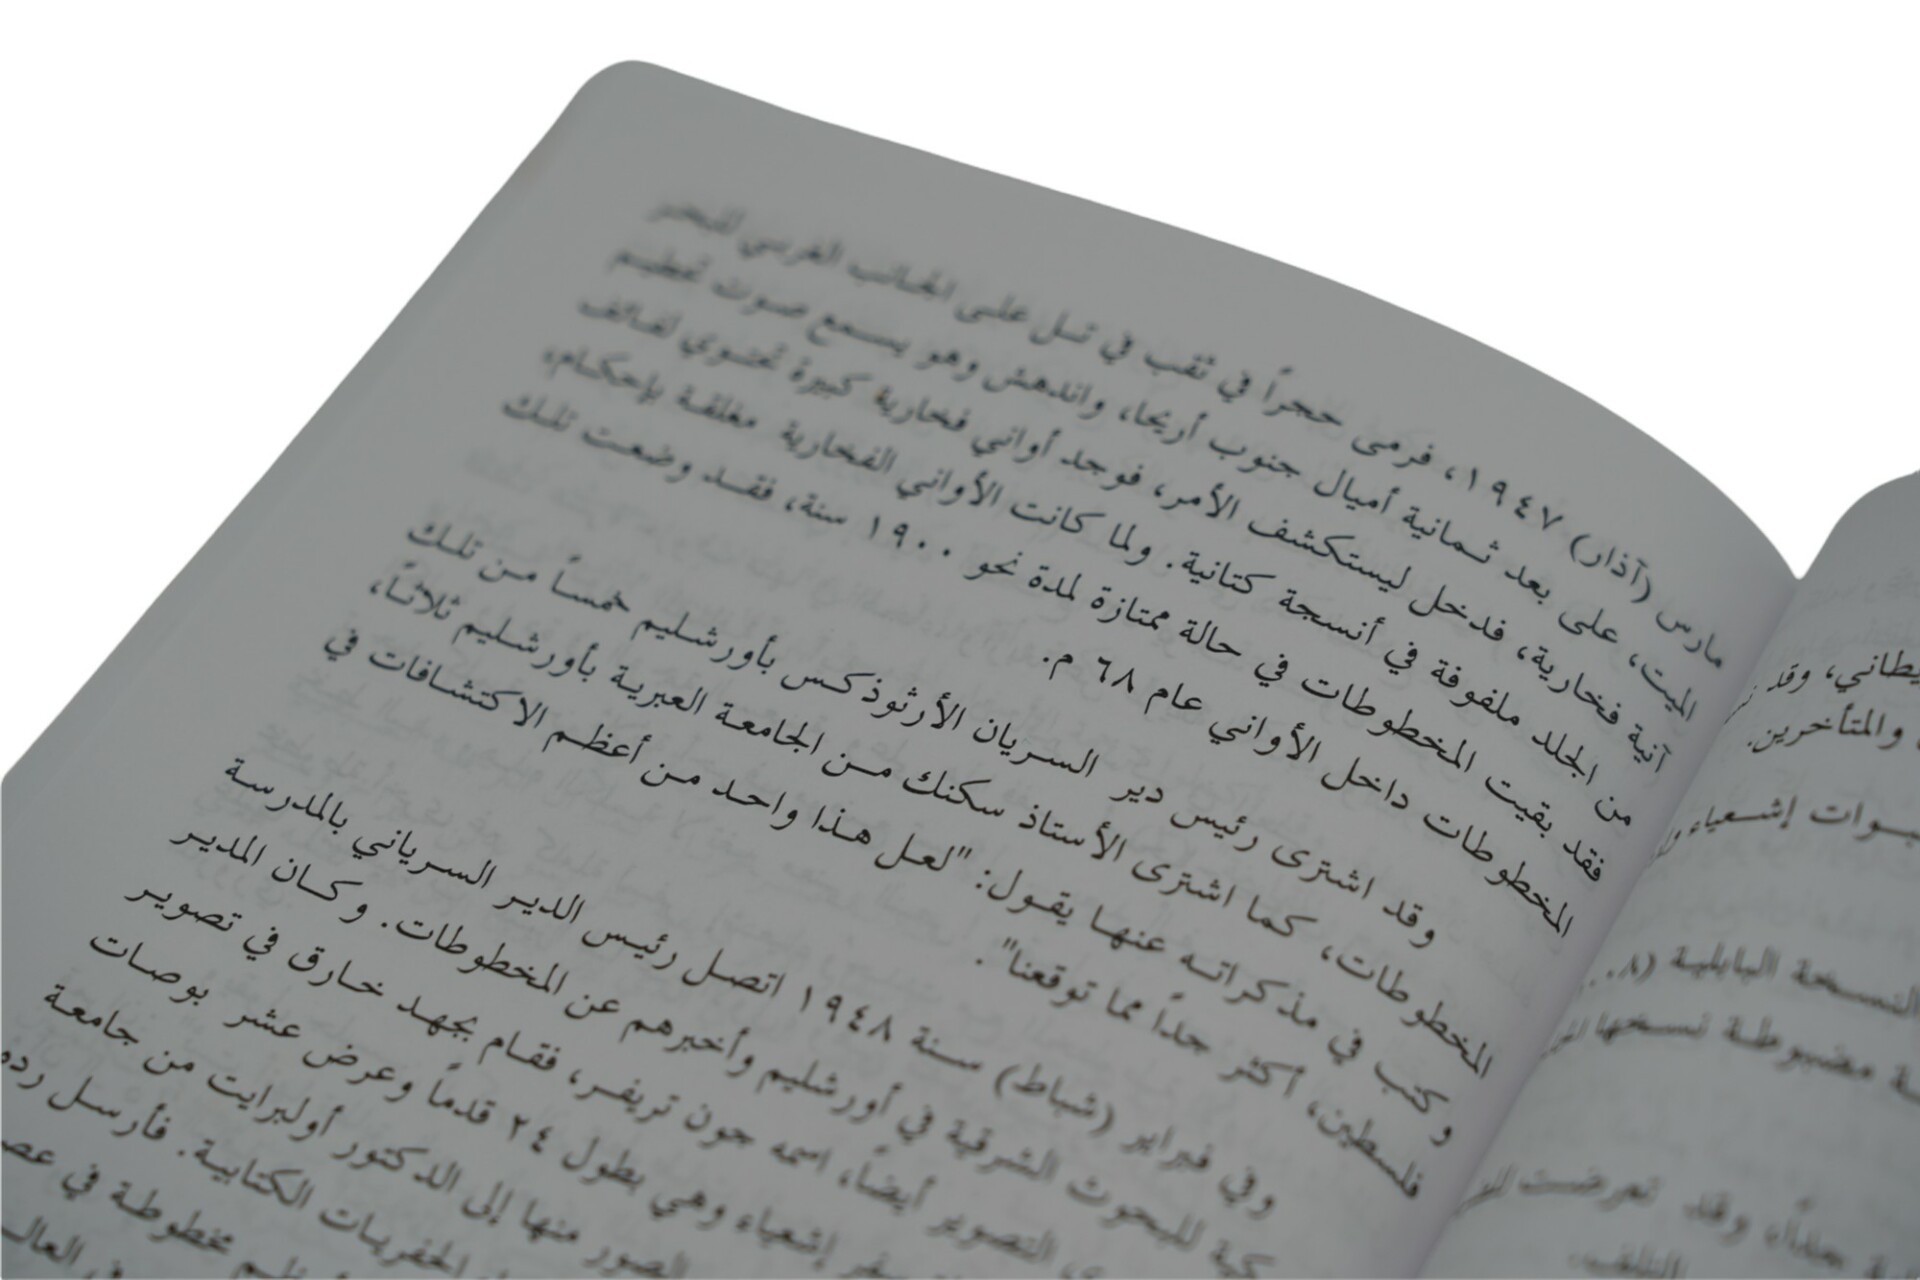 مارس (آذار) ١٩٤٧، فرمى حجراً في ثقب في تل على الجانب الغربي للبحر
الميت، على بعد ثمانية أميال جنوب أريحا، واندهش وهو يسمع صوت تحطيم
آنية فخارية، فدخل ليستكشف الأمر، فوجد أواني فخارية كبيرة تحتوي لفائف
من الجلد ملفوفة في أنسجة كتانية. ولما كانت الأواني الفخارية مغلقة بإحكام،
فقد بقيت المخطوطات في حالة ممتازة لمدة نحو ١٩٠٠ سنة، فقد وضعت تلك
المخطوطات داخل الأواني عام ٦٨ م.
وقد اشترى رئيس دير السريان الأرثوذكس بأورشليم خمساً من تلك
المخطوطات، كما اشترى الأستاذ سكنك من الجامعة العبرية بأورشليم ثلاثاً،
وكتب في مذكراته عنها يقول: "لعل هذا واحد من أعظم الاكتشافات في
فلسطين، أكثر جداً مما توقعنا".
وفي فبراير (شباط) سنة ١٩٤٨ اتصل رئيس الدير السرياني بالمدرسة
للبحوث الشرقية في أورشليم وأخبرهم عن المخطوطات. وكان المدير
التصوير أيضاً، اسمه جون تريفر، فقام بجهد خارق في تصوير
سفر إشعياء وهي بطول ٢٤ قدماً وعرض عشر بوصات
الصور منها إلى الدكتور أولبرايت من جامعة
الحفريات الكتابية. فأرسل رده
مخطوطة في
وقد
والمتأخرين.
إشعياء
النسخة البابلية
مضبوطة نسخها
جداً، وقد تعرضت
التلف.